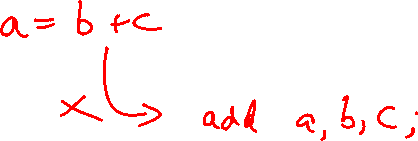 a = b + c
add a, b, c;